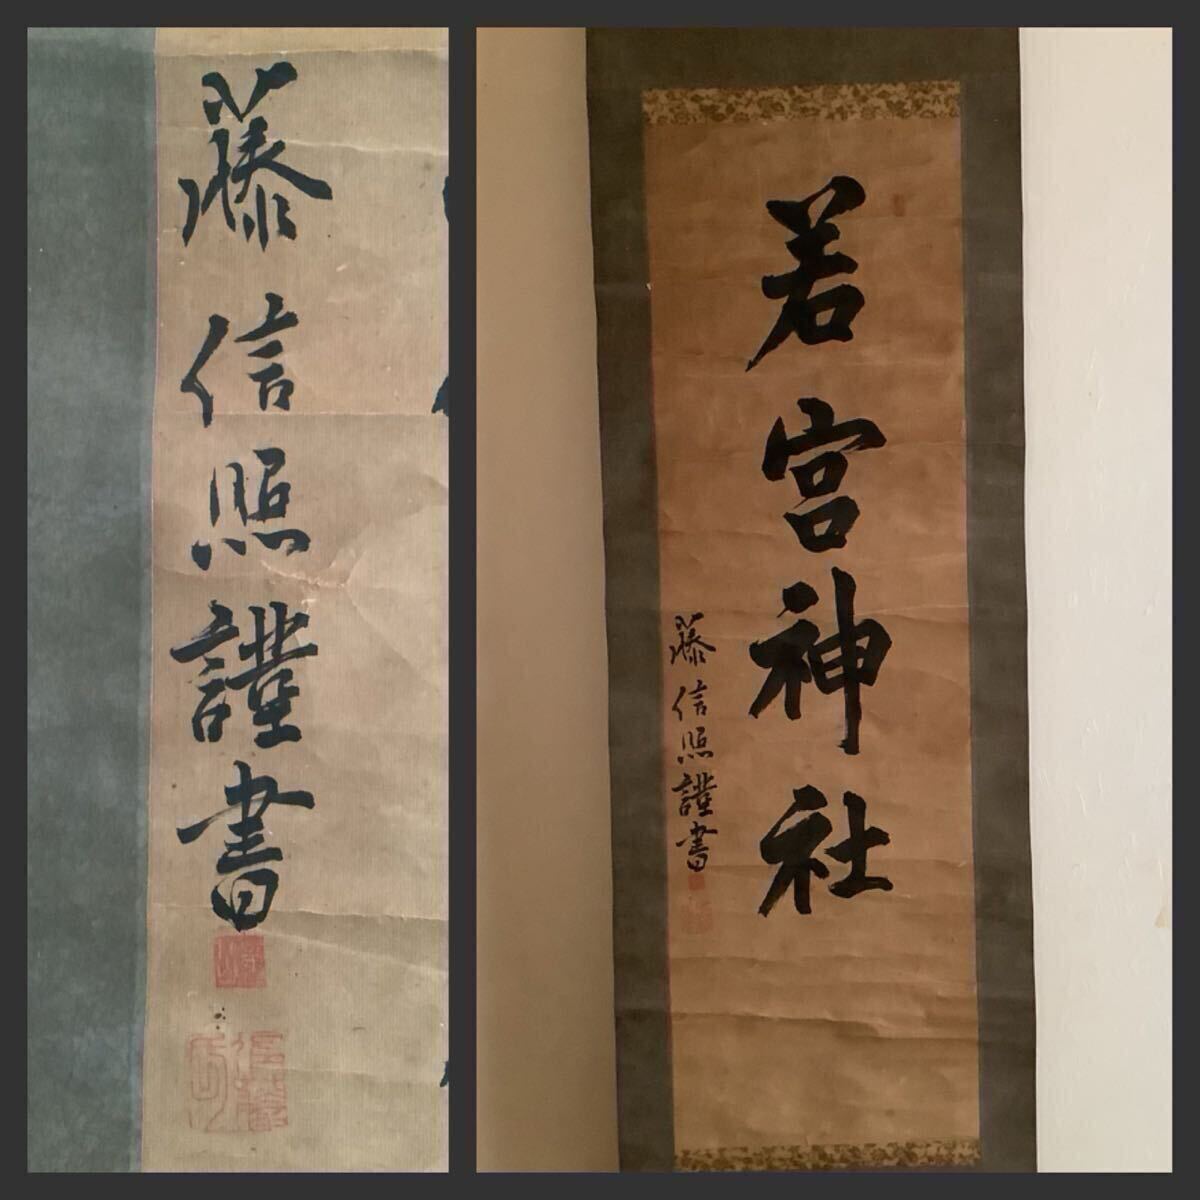 藤信照謹書
若宮神社
藤信照謹書